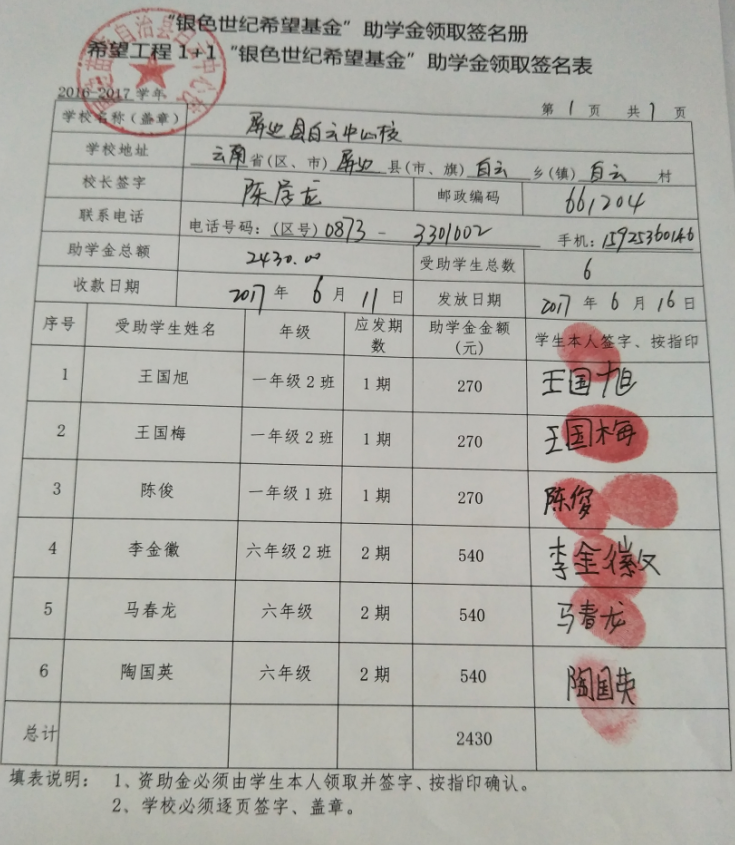 “银色世纪希望基金”助学金领取签名册
希望工程 1+1“银色世纪希望基金”助学金领取签名表
2016-2017 学年
第 1 页 共 1 页
学校名称（盖章） 屏边县白云中心校
学校地址 云南省(区、市) 屏边 县(市、旗) 白云 乡(镇) 白云 村
校长签字 陈学龙 邮政编码 661204
联系电话 电话号码：(区号) 0873 - 3301002 手机：15925360146
助学金总额 2430.00 受助学生总数 6
收款日期 2017 年 6 月 11 日 发放日期 2017 年 6 月 16 日
序号 受助学生姓名 年级 应发期数 助学金金额（元） 学生本人签字、按指印
1 王国旭 一年级 2 班 1 期 270 王国旭
2 王国梅 一年级 2 班 1 期 270 王国梅
3 陈俊 一年级 1 班 1 期 270 陈俊
4 李金徽 六年级 2 班 2 期 540 李金徽
5 马春龙 六年级 2 期 540 马春龙
6 陶国英 六年级 2 期 540 陶国英
总计 2430
填表说明： 1、资助金必须由学生本人领取并签字、按指印确认。
2、学校必须逐页签字、盖章。